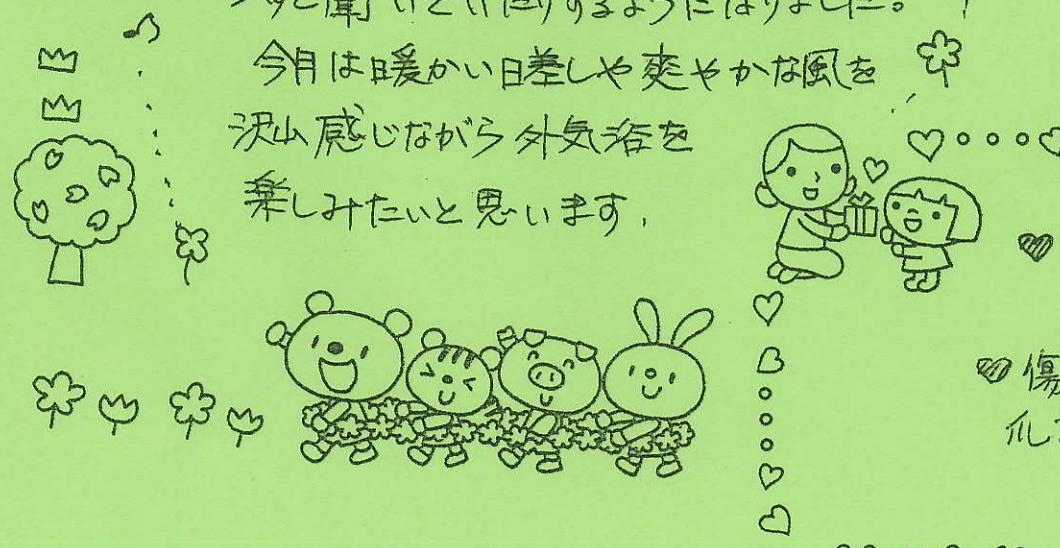 聞いていたりするようになりました。
今月は暖かい日差しや爽やかな風を
沢山感じながら外気浴を
楽しみたいと思います.
傷
爪